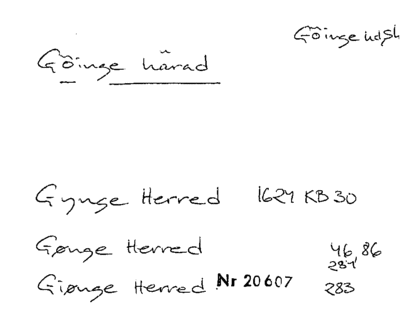 Göinge hdsh
Göinge härad
Gynge Herred 1624 KB 30
Gønge Herred 46, 86
284
Giønge Herred Nr 20607 283